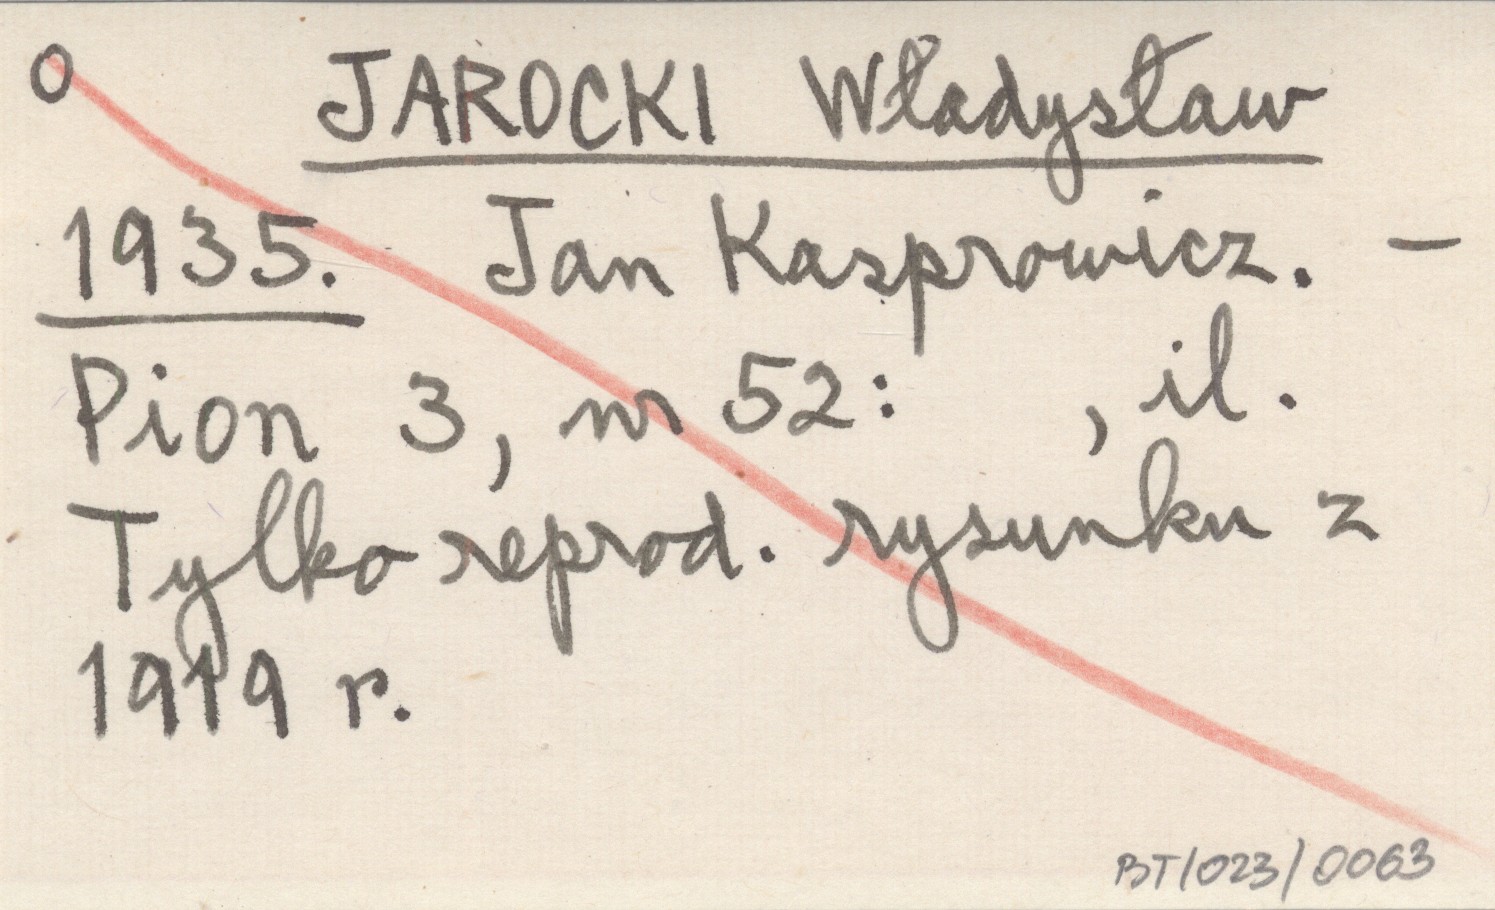 O JAROCKI Władysław
1935. Jan Kasprowicz. -
Pion 3, nr 52: , il.
Tylko reprod. rysunku z
1919 r.
BT/023/0063